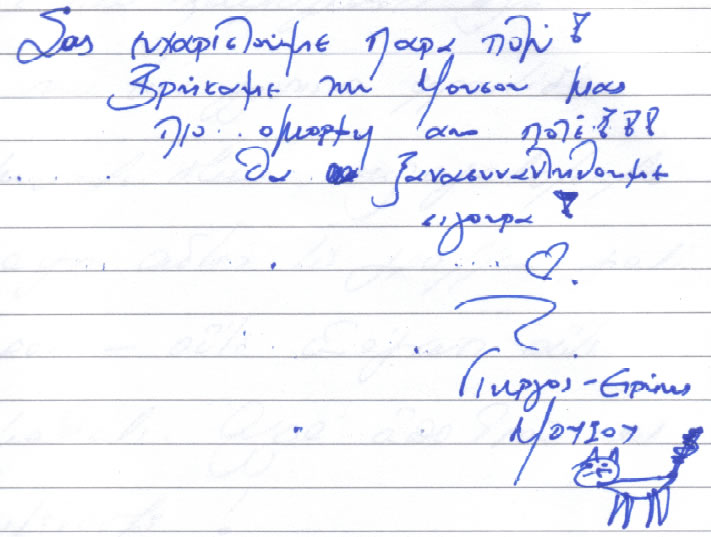 Σας ευχαριστούμε παρα πολύ!
Βρήκαμε την Μουσου μας
πιο .. ομορφη απο ποτέ!!!
θα ξανασυναντηθουμε
σιγουρα!
Γιωργος - Ειρήνη
ΜΟΥΣΟΥ